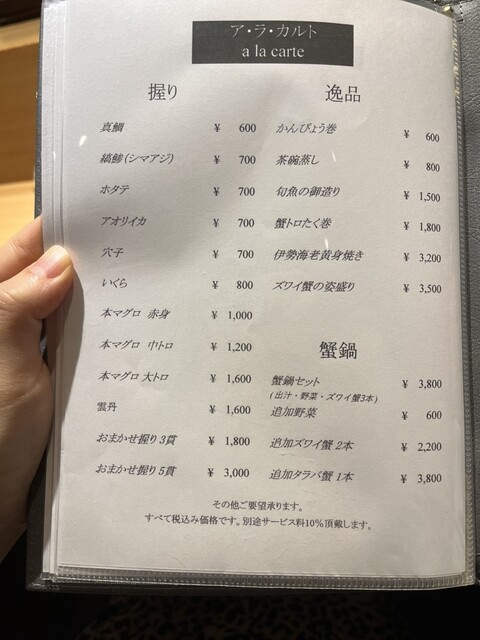 ア・ラ・カルト
a la carte
握り
真鯛 ¥ 600
縞鯵(シマアジ) ¥ 700
ホタテ ¥ 700
アオリイカ ¥ 700
穴子 ¥ 700
いくら ¥ 800
本マグロ 赤身 ¥ 1,000
本マグロ 中トロ ¥ 1,200
本マグロ 大トロ ¥ 1,600
雲丹 ¥ 1,600
おまかせ握り 3貫 ¥ 1,800
おまかせ握り 5貫 ¥ 3,000
逸品
かんぴょう巻 ¥ 600
茶碗蒸し ¥ 800
旬魚の御造り ¥ 1,500
蟹トロたく巻 ¥ 1,800
伊勢海老黄身焼き ¥ 3,200
ズワイ蟹の姿盛り ¥ 3,500
蟹鍋
蟹鍋セット ¥ 3,800
(出汁・野菜・ズワイ蟹3本)
追加野菜 ¥ 600
追加ズワイ蟹 2本 ¥ 2,200
追加タラバ蟹 1本 ¥ 3,800
その他ご要望承ります。
すべて税込み価格です。別途サービス料10%頂戴します。